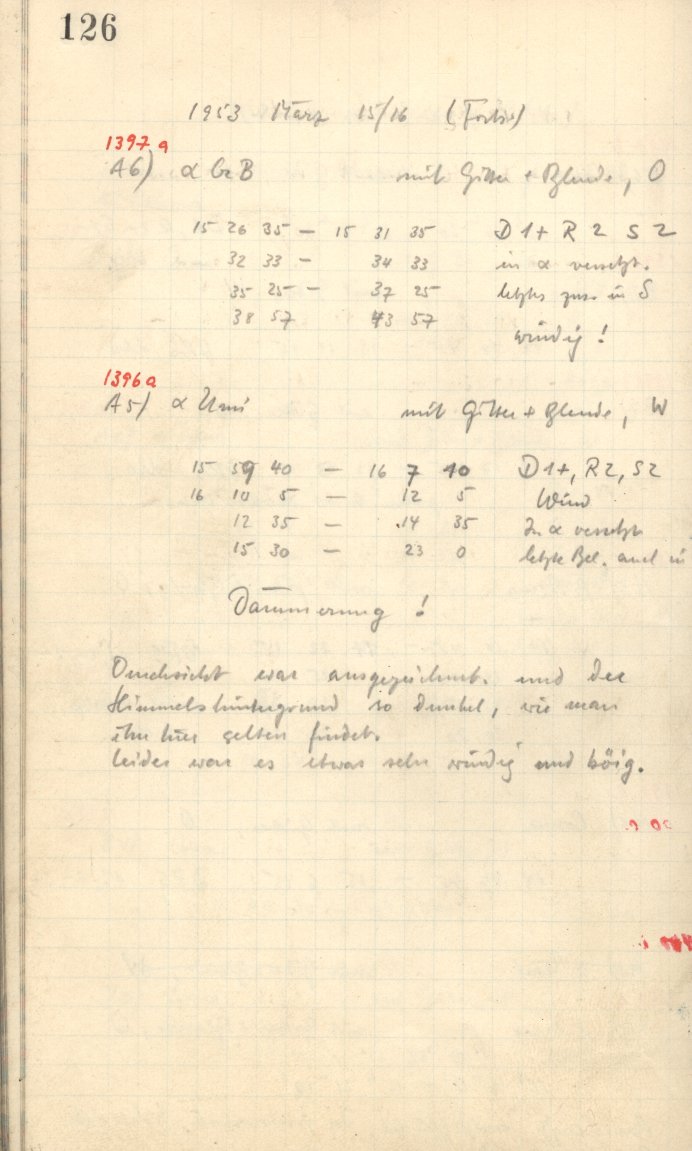 126
1953 März 15/16 (Forts.)
1397a
A6) α CrB mit Gitter + Blende, O
15 26 35 — 15 31 35 D 1+ R 2 S 2
32 33 — 34 33 in α versetzt.
35 25 — 37 25 letztes zus. in δ
38 57 43 57
windig!
1396a
A5) α Umi mit Gitter + Blende, W
15 59 40 — 16 7 10 D 1+, R2, S2
16 10 5 — 12 5 Wind
12 35 — 14 35 In α versetzt
15 30 — 23 0 letzte Bel. auch in
Dämmerung !
Durchsicht war ausgezeichnet. und der
Himmelshintergrund so dunkel, wie man
ihn hier selten findet.
leider war es etwas sehr windig und böig.